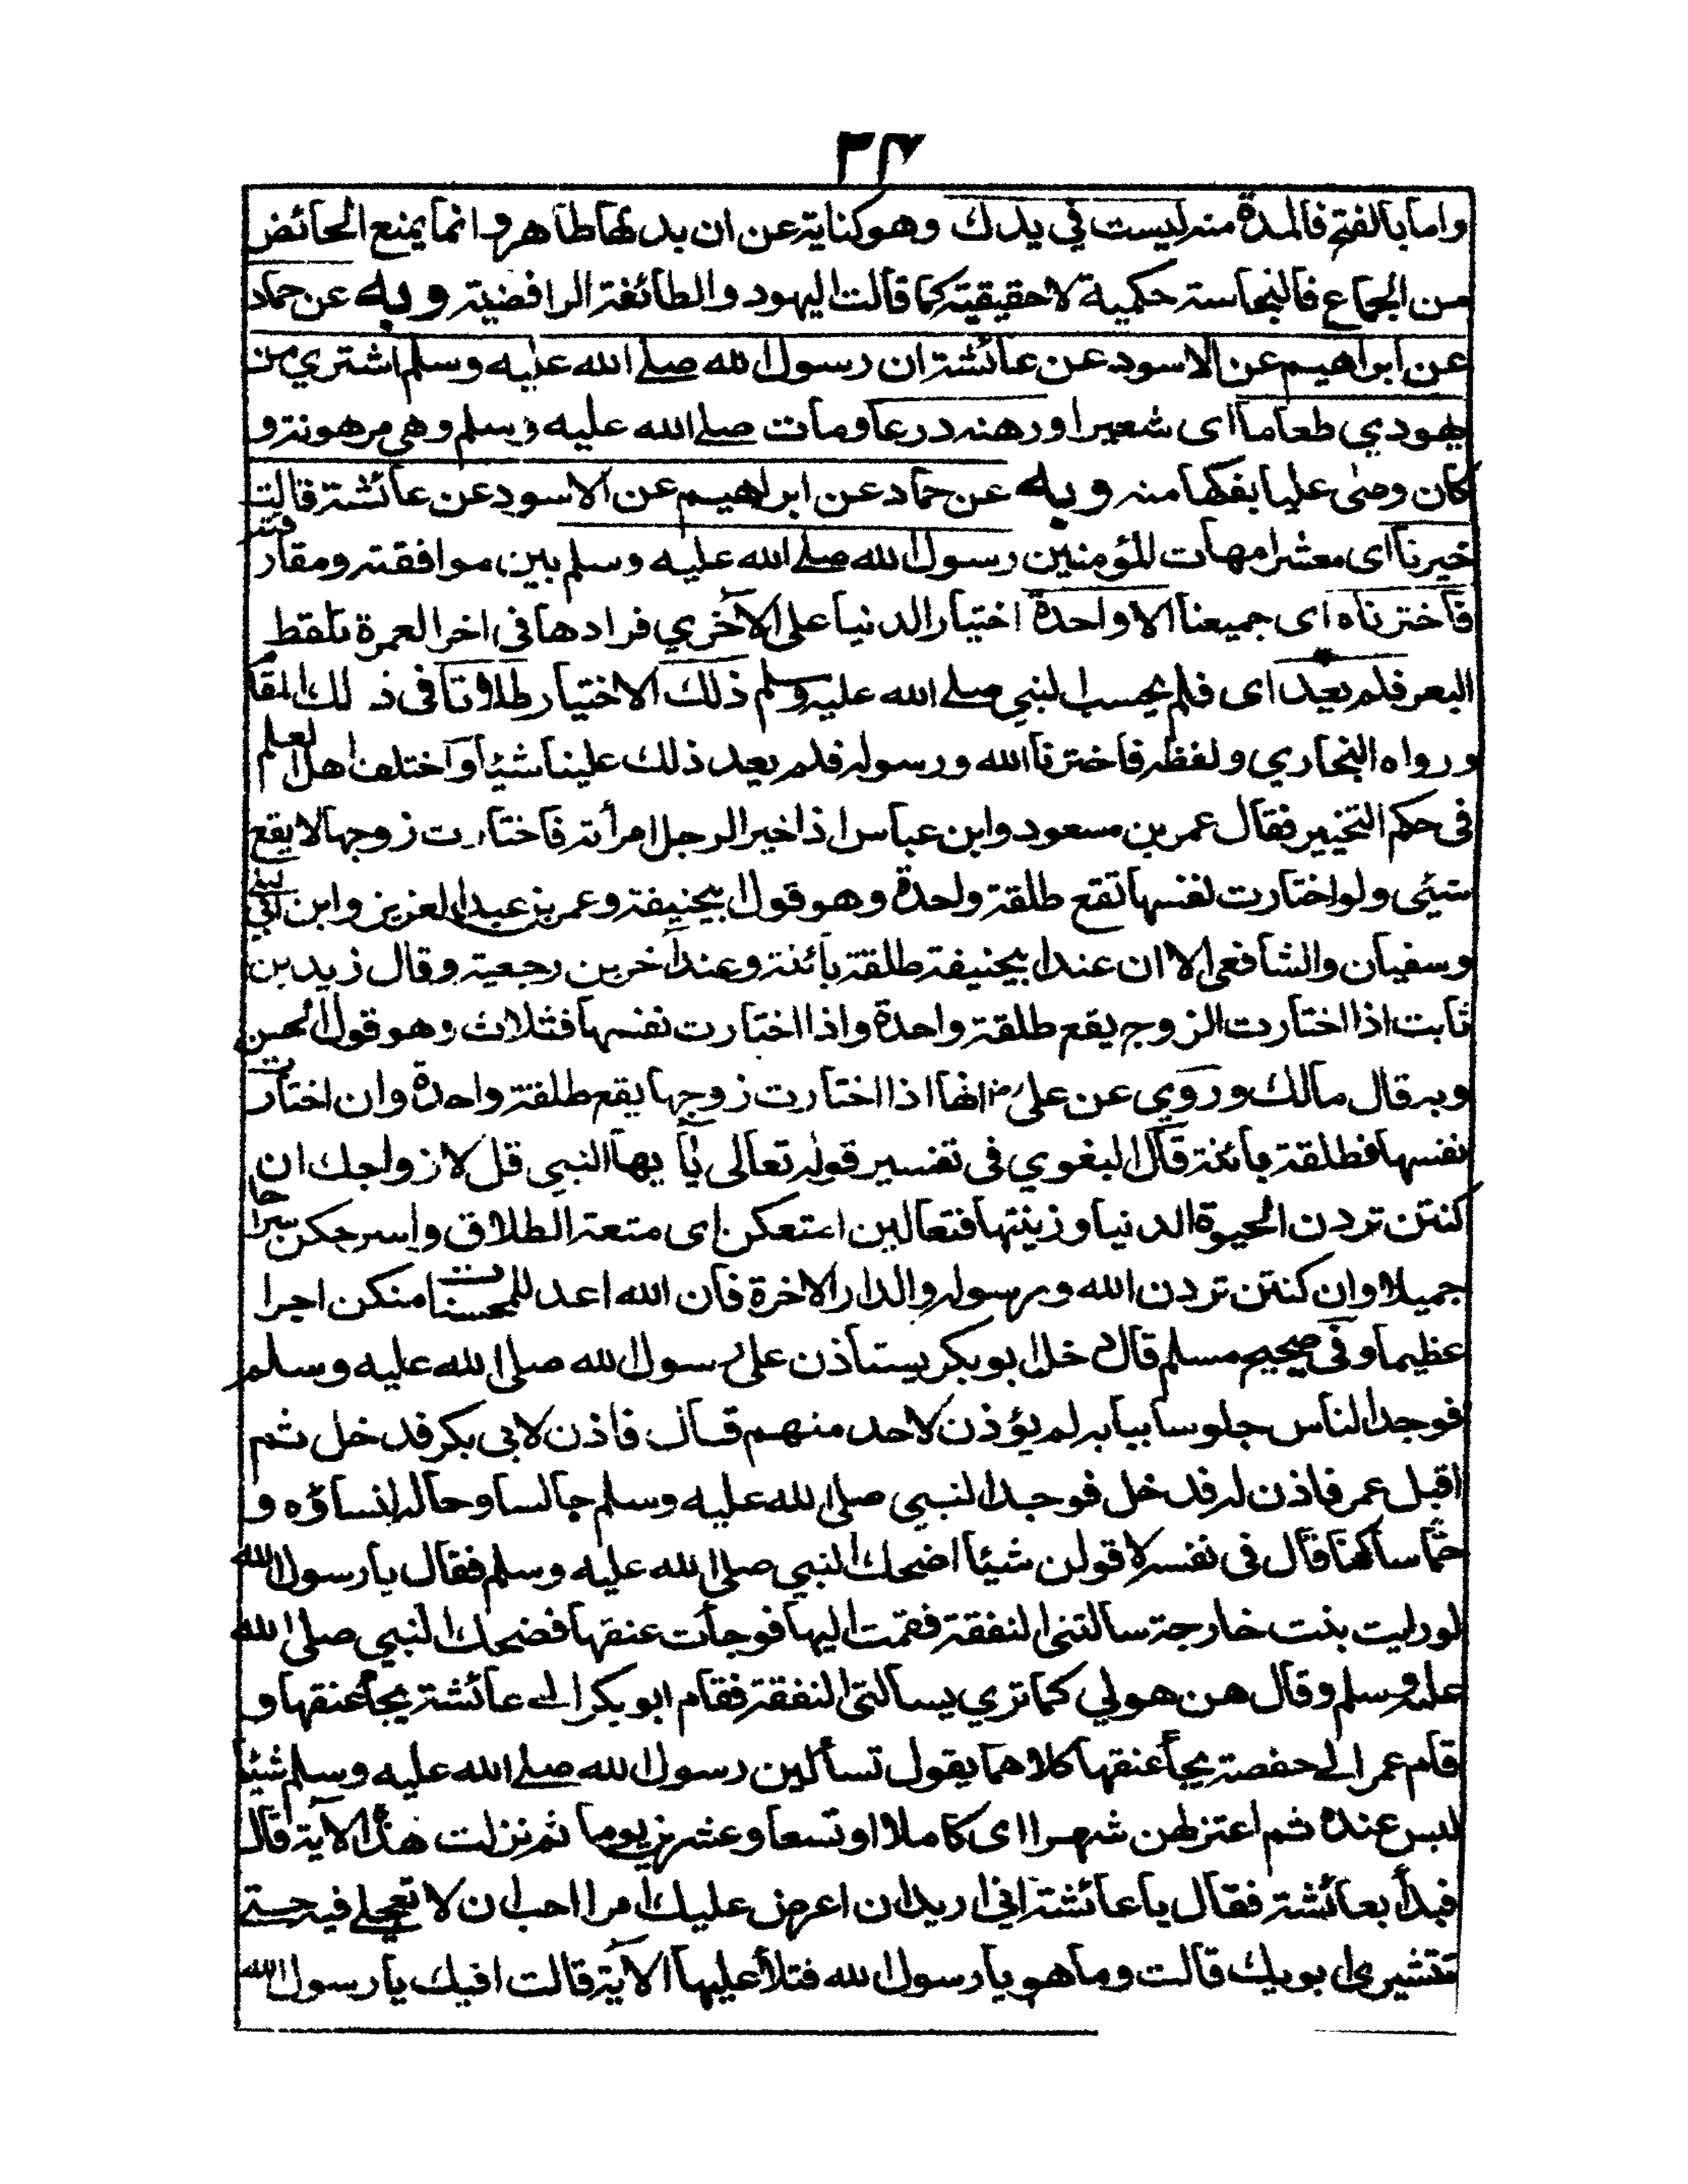 ٣٧
واما بالفتح فالمدة منه ليست في يدك وهو كناية عن ان بدنها طاهر وانما يمنع الحائض
من الجماع فالنجاسة حكمية لا حقيقية كما قالت اليهود والطائفة الرافضية وبه عن حماد
عن ابراهيم عن الاسود عن عائشة ان رسول الله صلے الله عليه وسلم اشتري من
يهودي طعاما اى شعيرا ورهنه درعا ومات صلے الله عليه وسلم وهي مرهونة و
كان وصى عليا بفكها منه وبه عن حماد عن ابراهيم عن الاسود عن عائشة قالت
خيرنا اى معشر امهات المؤمنين رسول الله صلے الله عليه وسلم بين موافقته ومفارقته
فاخترناه اى جميعنا الا واحدة اختيار الدنيا على الاخري فرادها في اخر العمرة تلقط
البعر فلم يعد اى فلم يحسب النبي صلے الله عليه وسلم ذلك الاختيار طلاقا في ذلك المقا
ورواه البخاري ولفظه فاخترنا الله ورسوله فلم يعد ذلك علينا شيئا واختلف اهل العلم
في حكم التخيير فقال عمر بن مسعود وابن عباس اذا خير الرجل امرأته فاختارت زوجها لا يقع
شيئى ولو اختارت نفسها تقع طلقة واحدة وهو قول ابيحنيفة وعمر بن عبد العزيز وابن ابي ليلى
وسفيان والشافعى الا ان عند ابيحنيفة طلقة بائنة وعند اخرين رجعية وقال زيد بن
ثابت اذا اختارت الزوج يقع طلقة واحدة واذا اختارت نفسها فثلاث وهو قول الحسن
وبه قال مالك وروي عن على رض انها اذا اختارت زوجها يقع طلقة واحدة وان اختارت
نفسها فطلقة بائنة قال البغوي في تفسير قوله تعالى يا يها النبي قل لازواجك ان
كنتن تردن الحيوة الدنيا وزينتها فتعالين امتعكن اى متعة الطلاق واسرحكن سراحا
جميلا وان كنتن تردن الله ورسوله والدار الاخرة فان الله اعد للمحسنات منكن اجرا
عظيما وفى صحيح مسلم قال دخل ابو بكر يستاذن على رسول الله صلى الله عليه وسلم
فوجد الناس جلوسا ببابه لم يؤذن لاحد منهم قال فاذن لابي بكر فدخل ثم
اقبل عمر فاذن له فدخل فوجد النبي صلى الله عليه وسلم جالسا وحاله نساؤه و
قال في نفسه لاقولن شيئا اضحك النبي صلى الله عليه وسلم فقال يا رسول الله
لو رايت بنت خارجة سالتني النفقة فقمت اليها فوجات عنقها فضحك النبي صلى الله
عليه وسلم وقال هن حولي كما تري يسالتنى النفقة فقام ابو بكر الے عائشة يجأ عنقها و
قام عمر الے حفصة يجأ عنقها كلاهما يقول تسألين رسول الله صلے الله عليه وسلم شيئا
ليس عنده ثم اعتزلهن شهرا اى كاملا او تسعا وعشرين يوما ثم نزلت هذه الاية قال
فبدأ بعائشة فقال يا عائشة اني اريد ان اعرض عليك امرا احب ان لا تعجلے فيه حتے
تستشيرى ابويك قالت وما هو يا رسول الله فتلا عليها الاية قالت افيك يا رسول الله